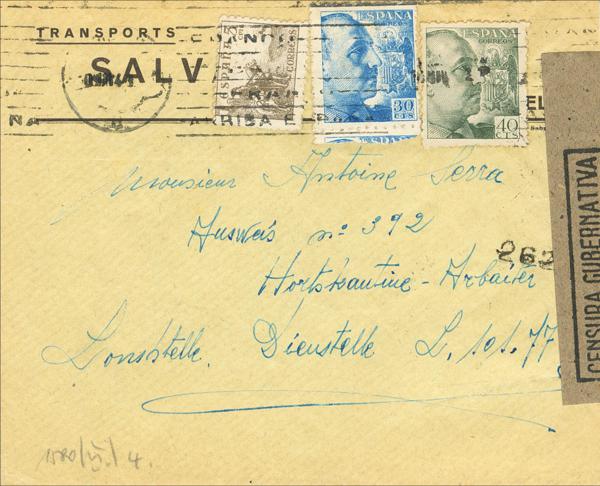 TRANSPORTS
SALV
ESPAÑA
5 CTS
CORREOS
ESPAÑA
CORREOS
30
CTS
ESPAÑA
CORREOS
40
CTS
ARRIBA E
Monsieur Antoine Serra
Ausweis nº 392
262
Hortskantine - Arbeiter
Lonsstelle. Dienstelle L. 101.77
CENSURA GUBERNATIVA